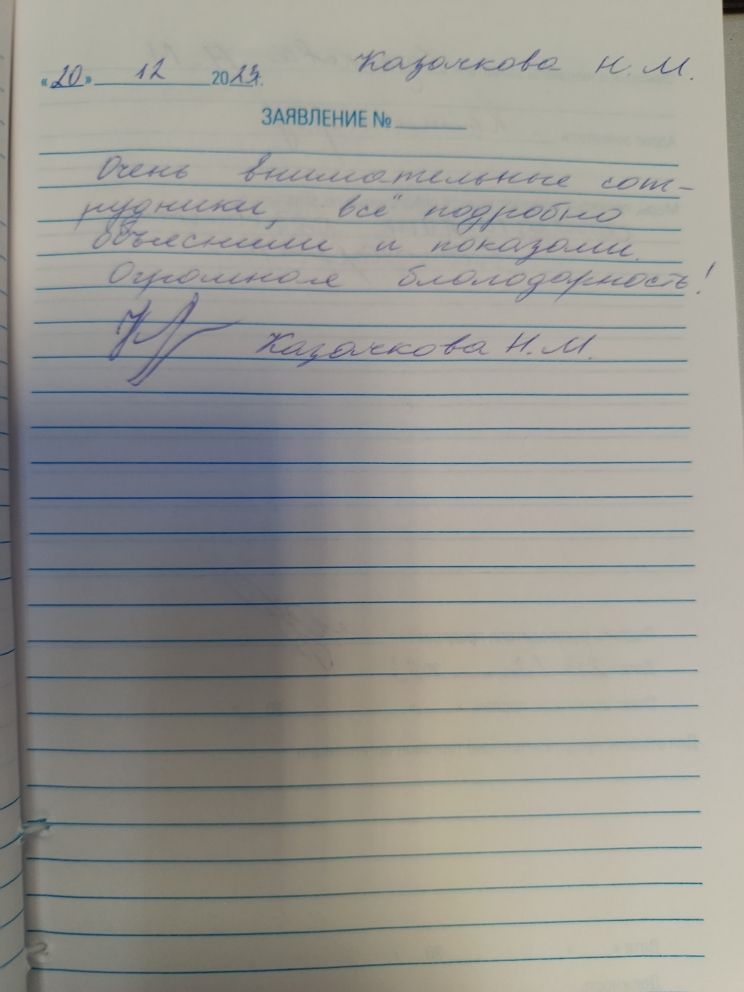 «20» 12 2023г. Казачкова Н.М.
ЗАЯВЛЕНИЕ №
Очень внимательные сот-
рудники, всё подробно
объяснили и показали.
Огромная благодарность!
Казачкова Н.М.